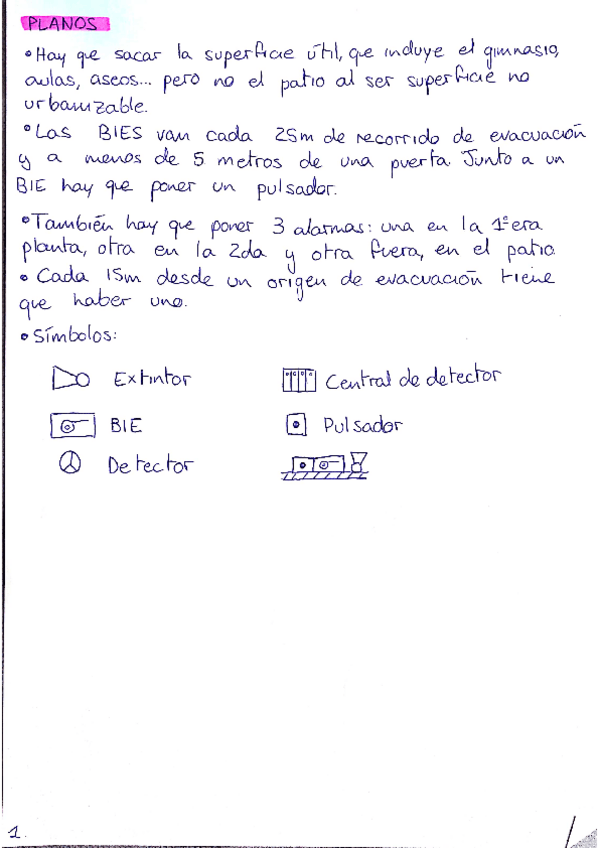 PLANOS
• Hay que sacar la superficie útil, que incluye el gimnasio,
aulas, aseos... pero no el patio al ser superficie no
urbanizable.
• Las BIES van cada 25m de recorrido de evacuación
y a menos de 5 metros de una puerta. Junto a un
BIE hay que poner un pulsador.
• También hay que poner 3 alarmas: una en la 1ºera
planta, otra en la 2da y otra fuera, en el patio.
• Cada 15m desde un origen de evacuación tiene
que haber uno.
• Símbolos:
Extintor Central de detector
BIE Pulsador
Detector
1.